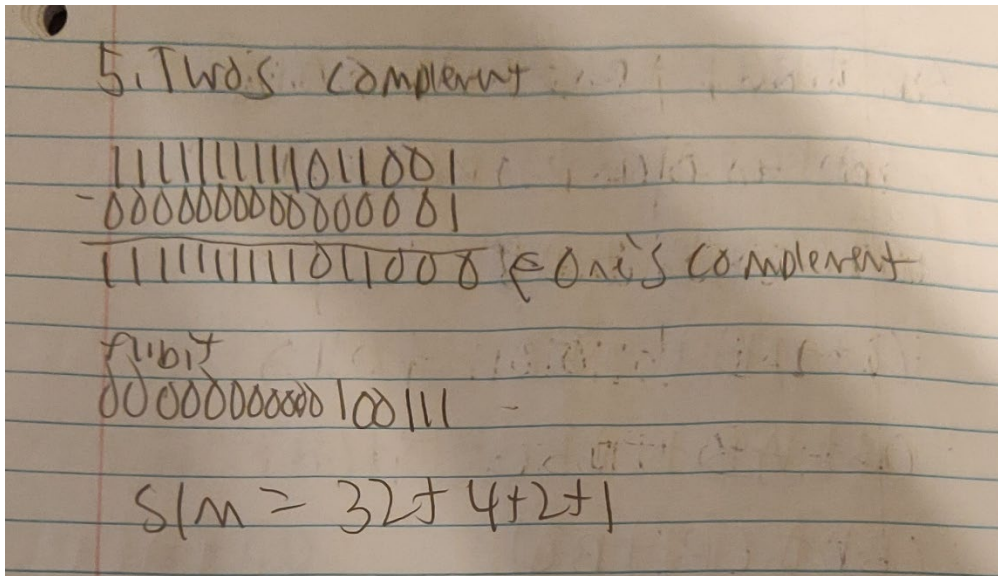 5. Two's complement
1111111111011001
- 0000000000000001
1111111111011000 ← One's complement
flibit
0000000000100111
SUM = 32 + 4+2+1